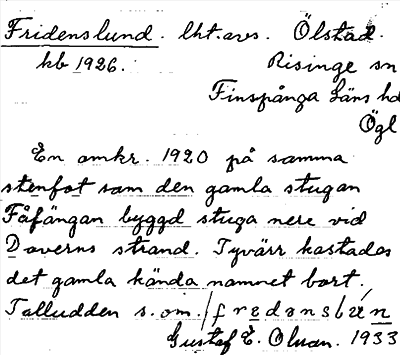 Fridenslund. lht.avs. Ölstad.
kb 1926. Risinge sn
Finspånga Läns hd
Ögl
En omkr. 1920 på samma
stenfot som den gamla stugan
Fåfängan byggd stuga nere vid
Doverns strand. Tyvärr kastades
det gamla kända namnet bort.
Talludden s. om.
Gustaf E. Olsson. 1933